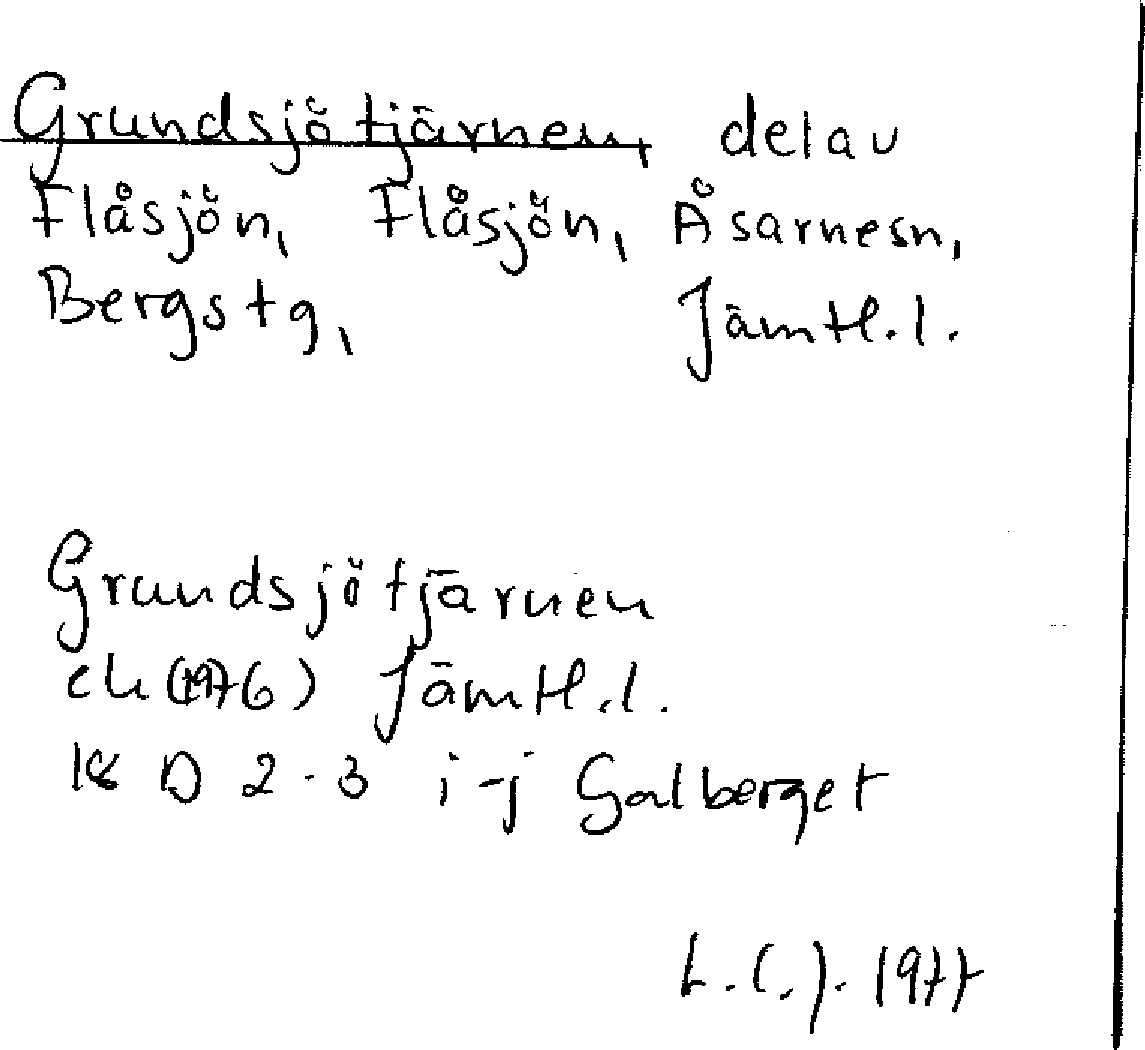 Grundsjötjärnen, del av
Flåsjön, Flåsjön, Åsarnesn,
Bergs tg, Jämtl.l.
Grundsjötjärnen
ek (1976) Jämtl.l.
18 D 2-3 i-j Galberget
L.C.J. 1977